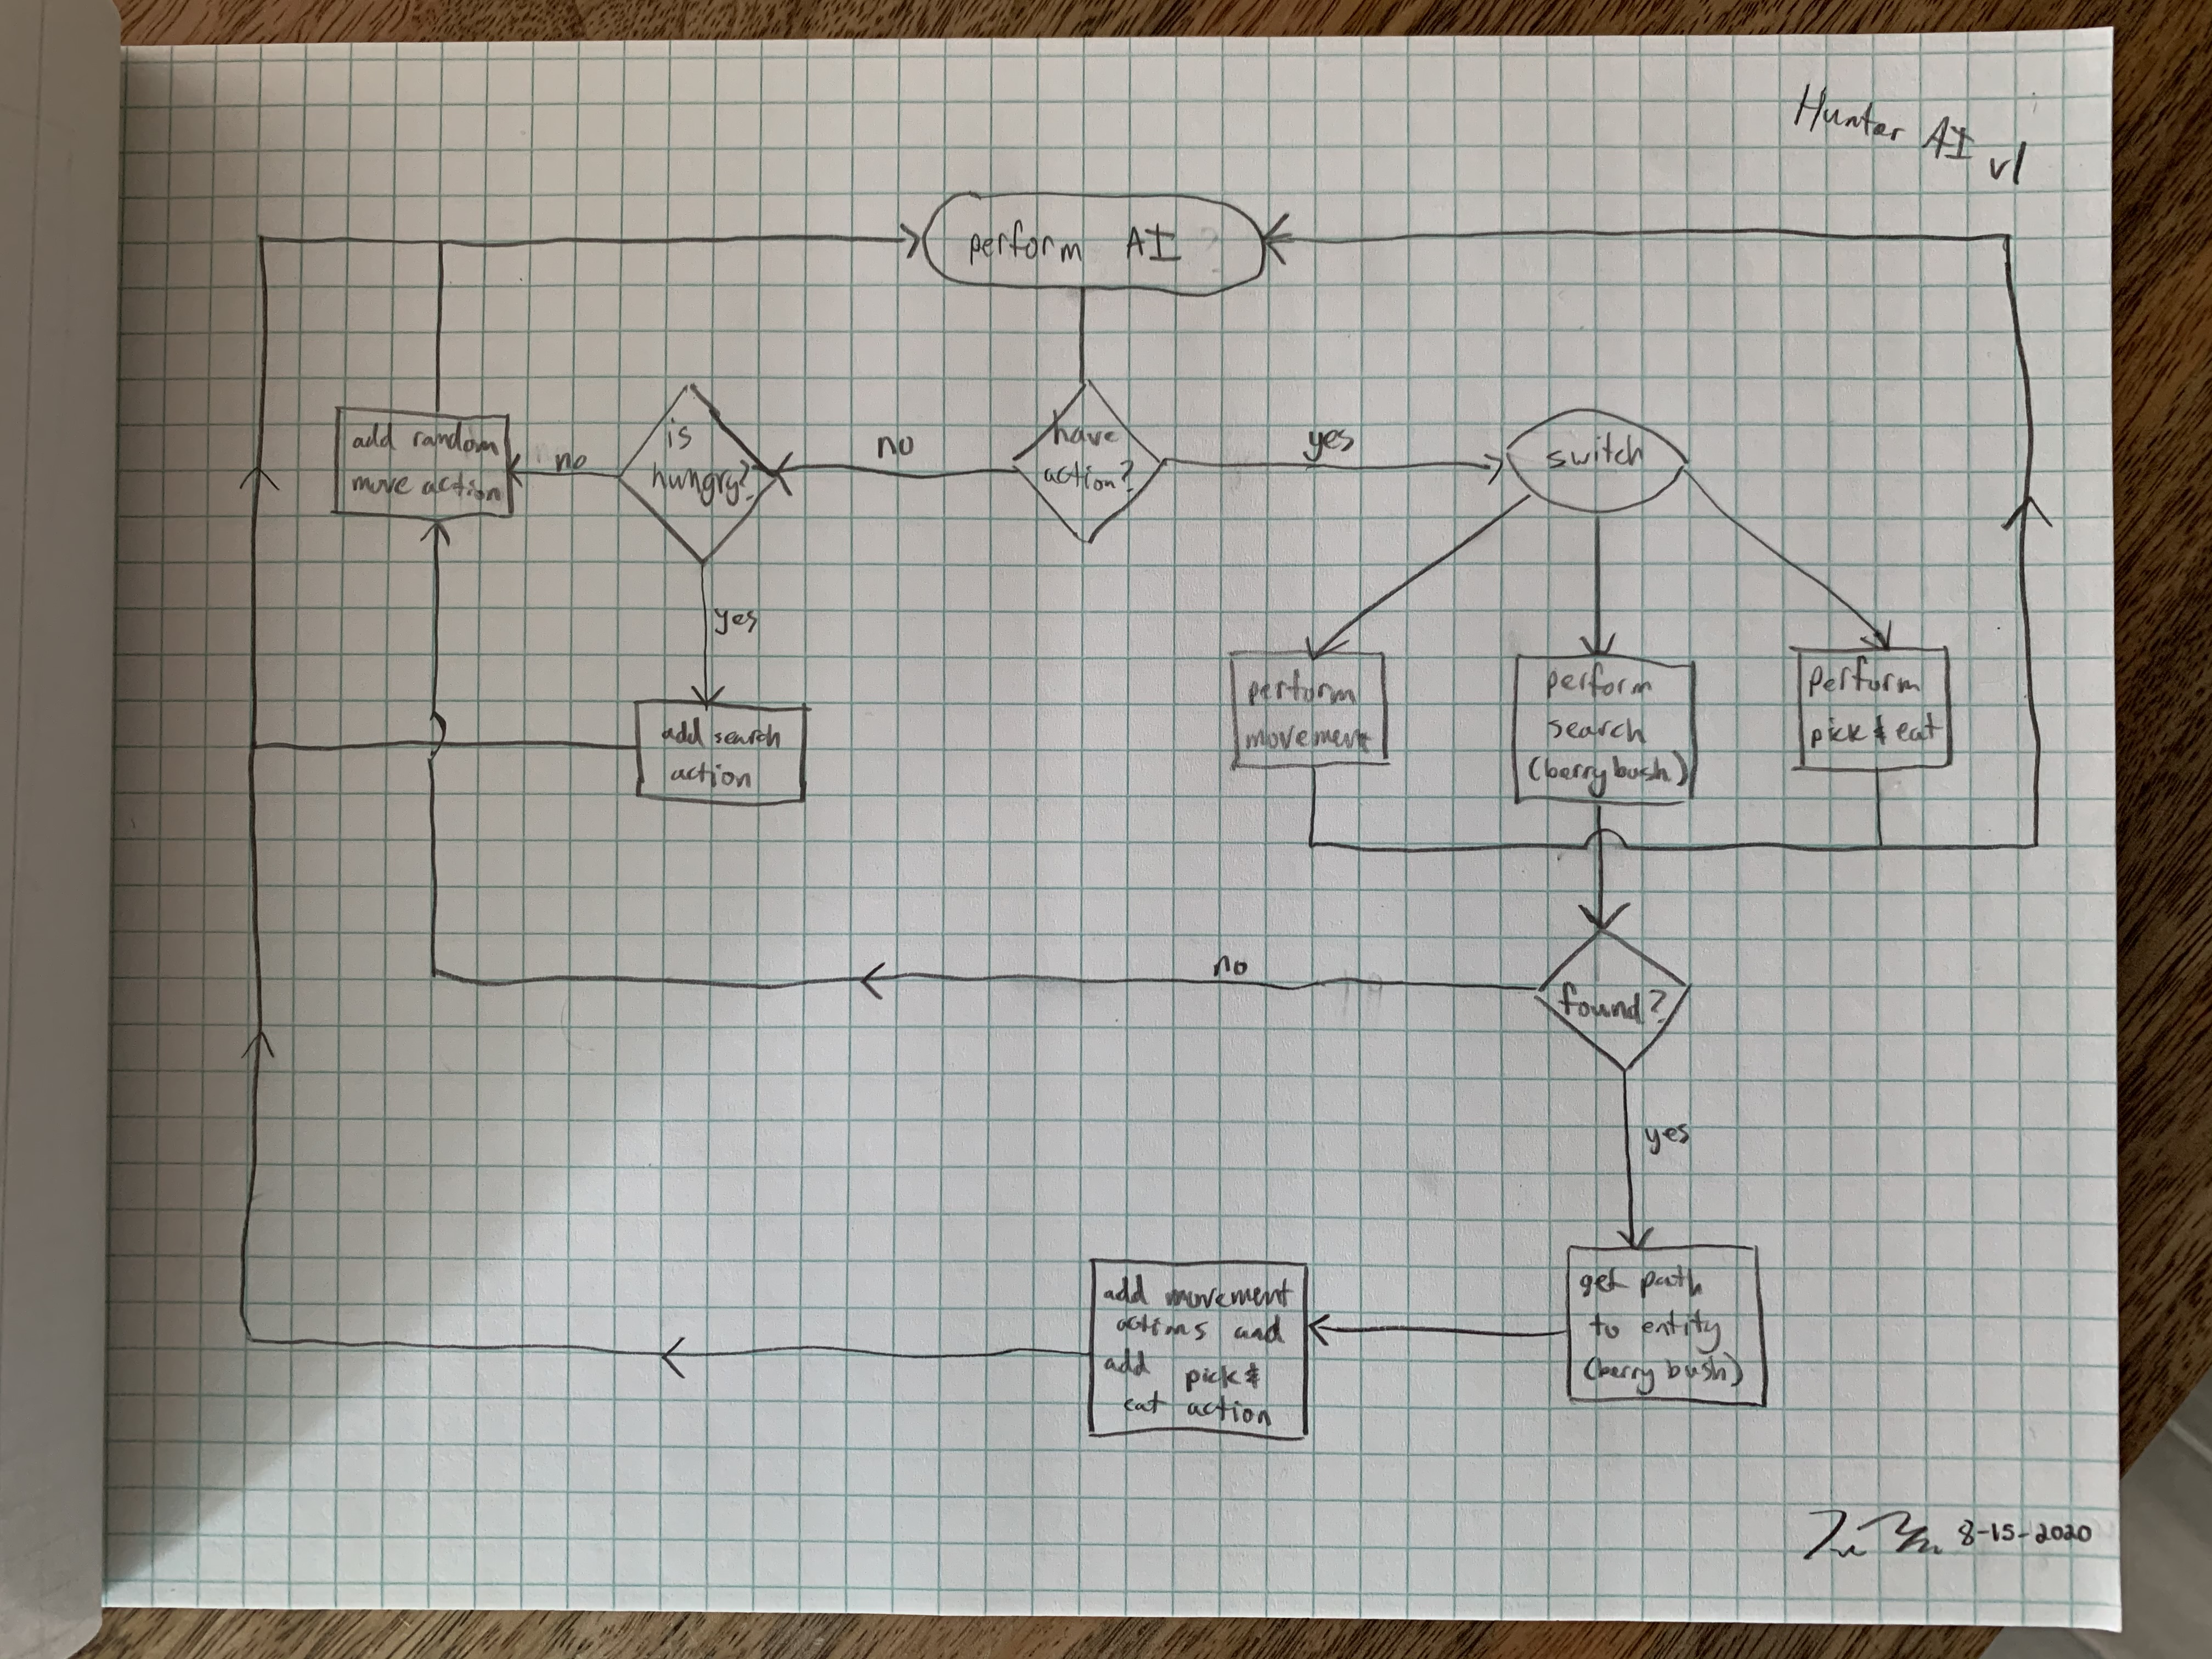 Hunter AI v1
perform AI
have
action?
no
yes
is
hungry?
no
yes
add random
move action
add search
action
switch
perform
movement
perform
search
(berry bush)
perform
pick & eat
found?
no
yes
get path
to entity
(berry bush)
add movement
actions and
add pick &
eat action
8-15-2020